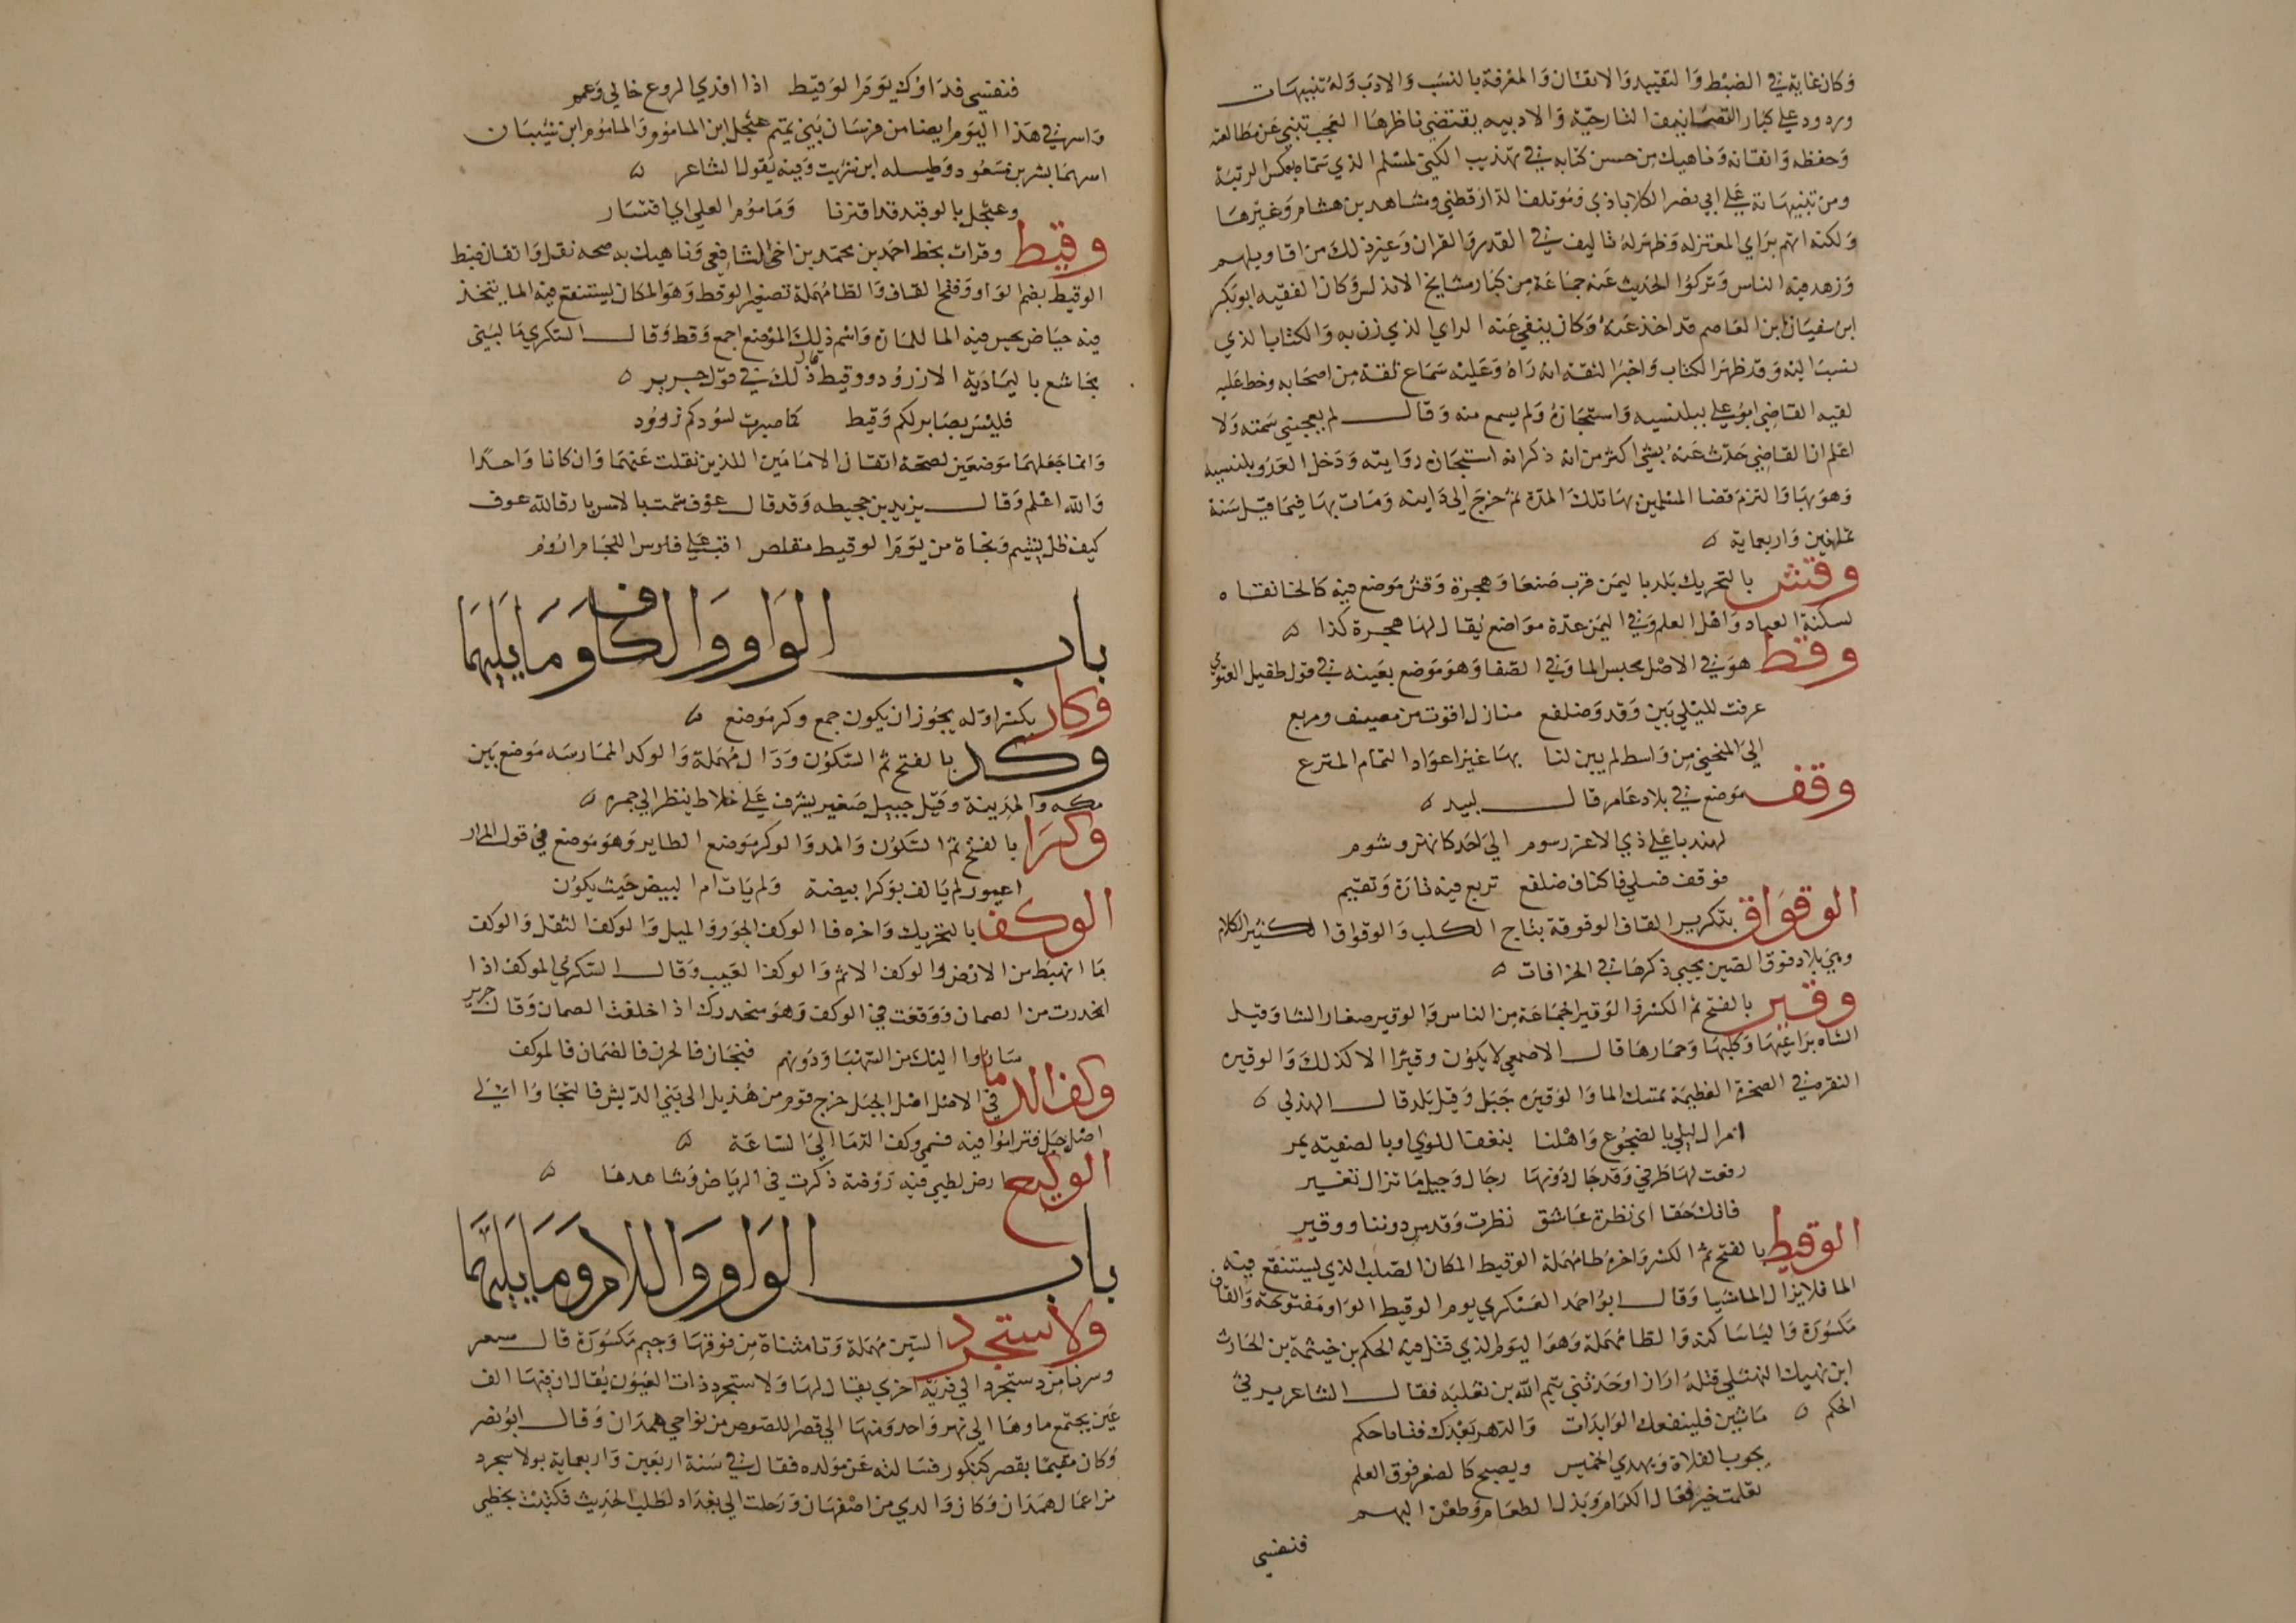 وكان غاية في الضبط والتقييد والاتقان والمعرفة بالنسب والادب وله تنبيهات
وردود على كبار التصانيف التاريخية والادبيه يقتضي ناظرها العجب تنبي عن مطالعته
وحفظه واتقانه وناهيك من حسن كتابه في تهذيب الكني لمسلم الذي سماه بعكس الرتبة
ومن تنبيهاته على ابي نصر الكلاباذي ومؤتلف الدارقطني ومشاهد بن هشام وغيرها
ولكنه اتهم براي المعتزله وظهر له تاليف في القدر والقران وغير ذلك من اقاويلهم
وزهد فيه الناس وتركوا الحديث عنه جماعة من كبار مشايخ الاندلس وكان الفقيه ابو بكر
ابن سفيان ابن العاصم قد اخذ عنه وكان ينفي عنه الراي الذي زن به والكتاب الذي
نسب اليه وقد ظهر الكتاب واخبر الثقة انه راه وعليه سماع ثقة من اصحابه وخط عليه
لقيه القاضي ابو علي ببلنسيه واستجازه ولم يسمع منه وقال لم يعجبني سمته ولا
اعلم ان القاضي حدث عنه بشي اكثر من انه ذكر انه استجازه روايته ودخل العدو بلنسيه
وهو بها والتزم قضا المسلمين بها تلك المدة ثم خرج الى دانيه ومات بها فيما قيل سنة
ثمانين واربعماية ه
وقش بالتحريك بلد باليمن قرب صنعا وهجرة وقش موضع فيه كالخانقاه
لسكنة العباد واهل العلم وفي اليمن عدة مواضع يقال لها هجرة كذا ه
وقط هو في الاصل محبس الما وفي الصفا وهو موضع بعينه في قول طفيل الغنوي
عرفت لليلي بين وقد وضلفع منازل اقوت من مصيف ومربع
الى المنحني من واسط لم يبن لنا بها غير اعواد الثمام المنزع
وقف موضع في بلاد عامر قال لبيد ه
لهند باعلي ذي الاعز رسوم الى احد كانهن وشوم
فوقف فسلي فاكناف ضلفع تربع فيه تارة وتقيم
الوقواق بتكرير القاف الوقوقة بناج الكلب والوقواق الكثير الكلام
وهي بلاد فوق الصين يجيي ذكرها في الخرافات ه
وقير بالفتح ثم الكسر والوقير الجماعة من الناس والوقير صغار الشا وقيل
الشاه براعيها وكلبها وحمارها قال الاصمعي لا يكون وقيرا الا كذلك والوقيره
النقره في الصخرة العظيمة تمسك الما والوقيره جبل وقيل بلد قال الهذلي ه
امر ال ليلي بالضجوع واهلنا بنعف اللوي او بالصفيه يمر
رفعت لها طرفي وقد حال دونها رجال وجيل ما تزال تغير
فانك حقا اى نظرة عاشق نظرت وقدس دوننا ووقير
الوقيط بالفتح ثم الكسر واخره طا مهملة الوقيط المكان الصلب الذي يستنقع فيه
الما فلا يزال الما شيا وقال ابو احمد العسكري يوم الوقيط الواو مفتوحة والقاف
مكسورة والياسا كنه والطا مهملة وهو اليوم الذي قتل فيه الحكم بن خيثمة بن الحارث
ابن نهيك النهشلي قتله اراز اوحد ثني تيم الله بن ثعلبه فقال الشاعر يرثي
الحكم ه ما شين فلينفعك الوابدات والدهر بعدك فتا ما حكم
يجوب الفلاة ويهدي الخميس ويصبح كالصقر فوق العلم
تعلمت خير فعال الكرام وبذل الطعام وطعن البهم
فنفسي
فنفسي فداوك يوم الوقيط اذا افدي الروع خالي وعم
واسر في هذا اليوم ايضا من فرسان بني تميم عثجل ابن المامؤم والمامؤم ابن شيبان
اسرهما بشر بن مسعود وطيسله ابن شريت وفيه يقول الشاعر ه
وعثجل بالوقيد قد اقترنا ومامؤم العلي اي اقتسار
وقيط وقرات بخط احمد بن محمد بن اخي الشافعي وناهيك به صحه نقل واتقان ضبط
الوقيط بضم الواو وفتح القاف والطا مهملة تصغير الوقط وهو المكان يستنقع فيه الما يتخذ
فيه حياض يحبس فيه الما للمارة واسم ذلك الموضع اجمع وقط وقال السكري ما لبني
مجاشع بالبادية الا زرود ووقيط قال ذلك في قول جرير ه
فليس بصابر لكم وقيط كما صبرت لسؤدكم زرود
وانما جعلهما موضعين لصحة اتقان الامامين اللذين نقلت عنهما وان كانا واحدا
والله اعلم وقال يزيد بن جحيطه وقد قال عوف شمت بالامس بارق الله عوف
كيف ظل يشيم ونجاة من يوم الوقيط مقلص اقب على فاوس اللجام ازوم
باب الواو والكاف وما يليهما
وكار بكسر اوله يجوز ان يكون جمع وكر موضع ه
وكد بالفتح ثم السكون ودال مهملة والوكد الممارسه موضع بين
مكه والمدينة وقيل جبيل صغير يشرف على خلاط ينظر الى جمره ه
وكرا بالفتح ثم السكون والمد والوكر موضع الطاير وهو موضع في قول المرار
اعيور لم يالف بوكرا بيضة ولم يات ام البيض حيث يكون
الوكف بالتحريك واخره فا الوكف الجور والميل والوكف الثقل والوكف
ما انهبط من الارض والوكف الاثم والوكف العيب وقال السكري الوكف اذا
انحدرت من الصمان ووقعت في الوكف وهو منحدرك اذا خلفت الصمان وقال جرير
ساروا اليك من السهبا ودونهم فيحان فالحزن فالصمان فالوكف
وكف الدما في الاصل اصل الجبل خرج قوم من هذيل الى بني الديش فالتجاوا الى
اصل جبل فتراموا فيه فسمي وكف الدما الى الساعة ه
الوكيع ارض لطيي فيه روضة ذكرت في الرياض وشاهدها ه
باب الواو واللام وما يليهما
ولاستجرد السين مهملة وتا مثناة من فوقها وجيم مكسورة قال مسعر
وسرنا من دستجرد الى قرية اخري يقال لها ولاستجرد ذات العيون يقال ان فيها الف
عين يجتمع ماوها الى نهر واحد ومنها الى قصر اللصوص من نواحي همدان وقال ابو نصر
وكان مقيما بقصر كنكور فسالته عن مولده فقال في سنة اربعين واربعماية بولاسجرد
من اعمال همدان وكان والدي من اصفهان ورحلت الى بغداد لطلب الحديث فكتبت بخطي